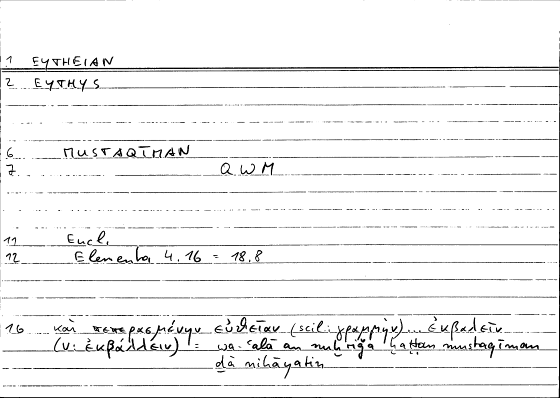 1 EYTHEIAN
2 EYTHYS
6 MUSTAQĪMAN
7 QWM
11 Eucl.
12 Elementa 4.16 = 18.8
16 καὶ πεπερασμένην εὐθεῖαν (scil. γραμμὴν)... ἐκβαλεῖν
(v: ἐκβάλλειν) = wa-ʿalā an nuḫriǧa ḫaṭṭan mustaqīman
ḏā nihāyatin